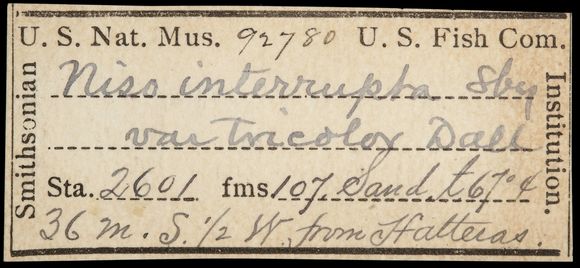 U. S. Nat. Mus. 92780 U. S. Fish Com.
Smithsonian
Niso interrupta Sby
var tricolor Dall
Institution.
Sta. 2601 fms 107 Sand, t 67°4
36 m. S. 1/2 W. from Hatteras.